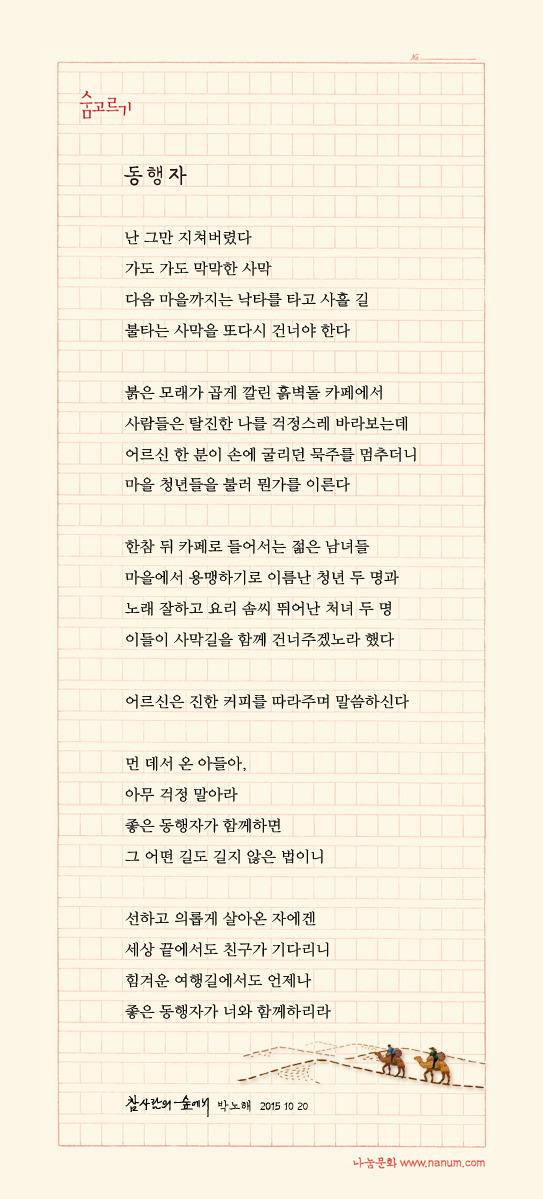 №
숨고르기
동행자
난 그만 지쳐버렸다
가도 가도 막막한 사막
다음 마을까지는 낙타를 타고 사흘 길
불타는 사막을 또다시 건너야 한다
붉은 모래가 곱게 깔린 흙벽돌 카페에서
사람들은 탈진한 나를 걱정스레 바라보는데
어르신 한 분이 손에 굴리던 묵주를 멈추더니
마을 청년들을 불러 뭔가를 이른다
한참 뒤 카페로 들어서는 젊은 남녀들
마을에서 용맹하기로 이름난 청년 두 명과
노래 잘하고 요리 솜씨 뛰어난 처녀 두 명
이들이 사막길을 함께 건너주겠노라 했다
어르신은 진한 커피를 따라주며 말씀하신다
먼 데서 온 아들아,
아무 걱정 말아라
좋은 동행자가 함께하면
그 어떤 길도 길지 않은 법이니
선하고 의롭게 살아온 자에겐
세상 끝에서도 친구가 기다리니
힘겨운 여행길에서도 언제나
좋은 동행자가 너와 함께하리라
참사람의 숲에서 박노해 2015 10 20
나눔문화 www.nanum.com